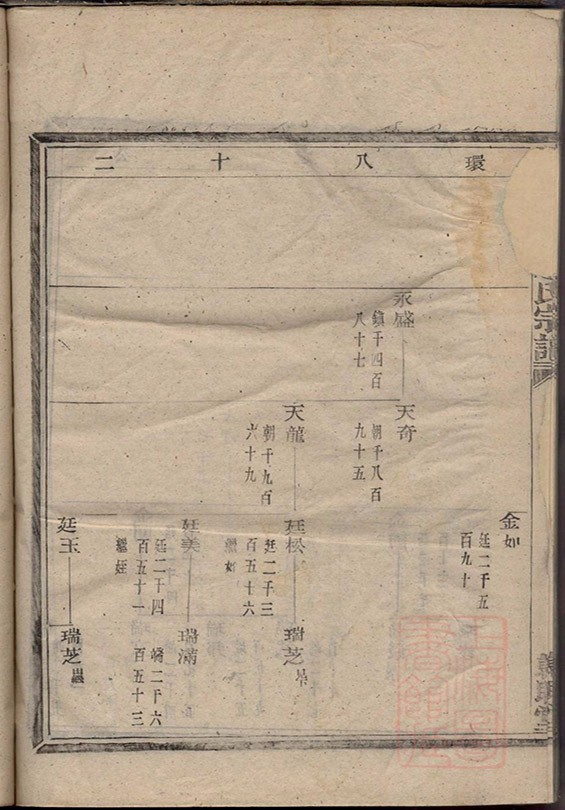 環八十二
氏宗譜
金如
廷二千五
百九十
永盛
鎮千四百
八十七
天奇
朝千八百
九十五
天龍
朝千九百
六十九
廷松
廷二千三
百五十六
繼如
瑞芝
廷美
廷二千四
百五十一
繼姪
瑞滿
崤二千六
百五十三
廷玉
瑞芝